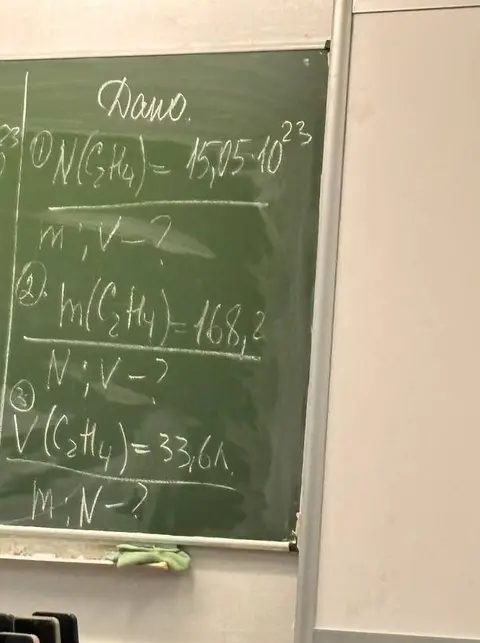 23
Дано.
① N(C₂H₄) = 15,05·10²³
m ; V - ?
②. m(C₂H₄) = 168,2
N ; V - ?
③
V(C₂H₄) = 33,6 л.
m ; N - ?